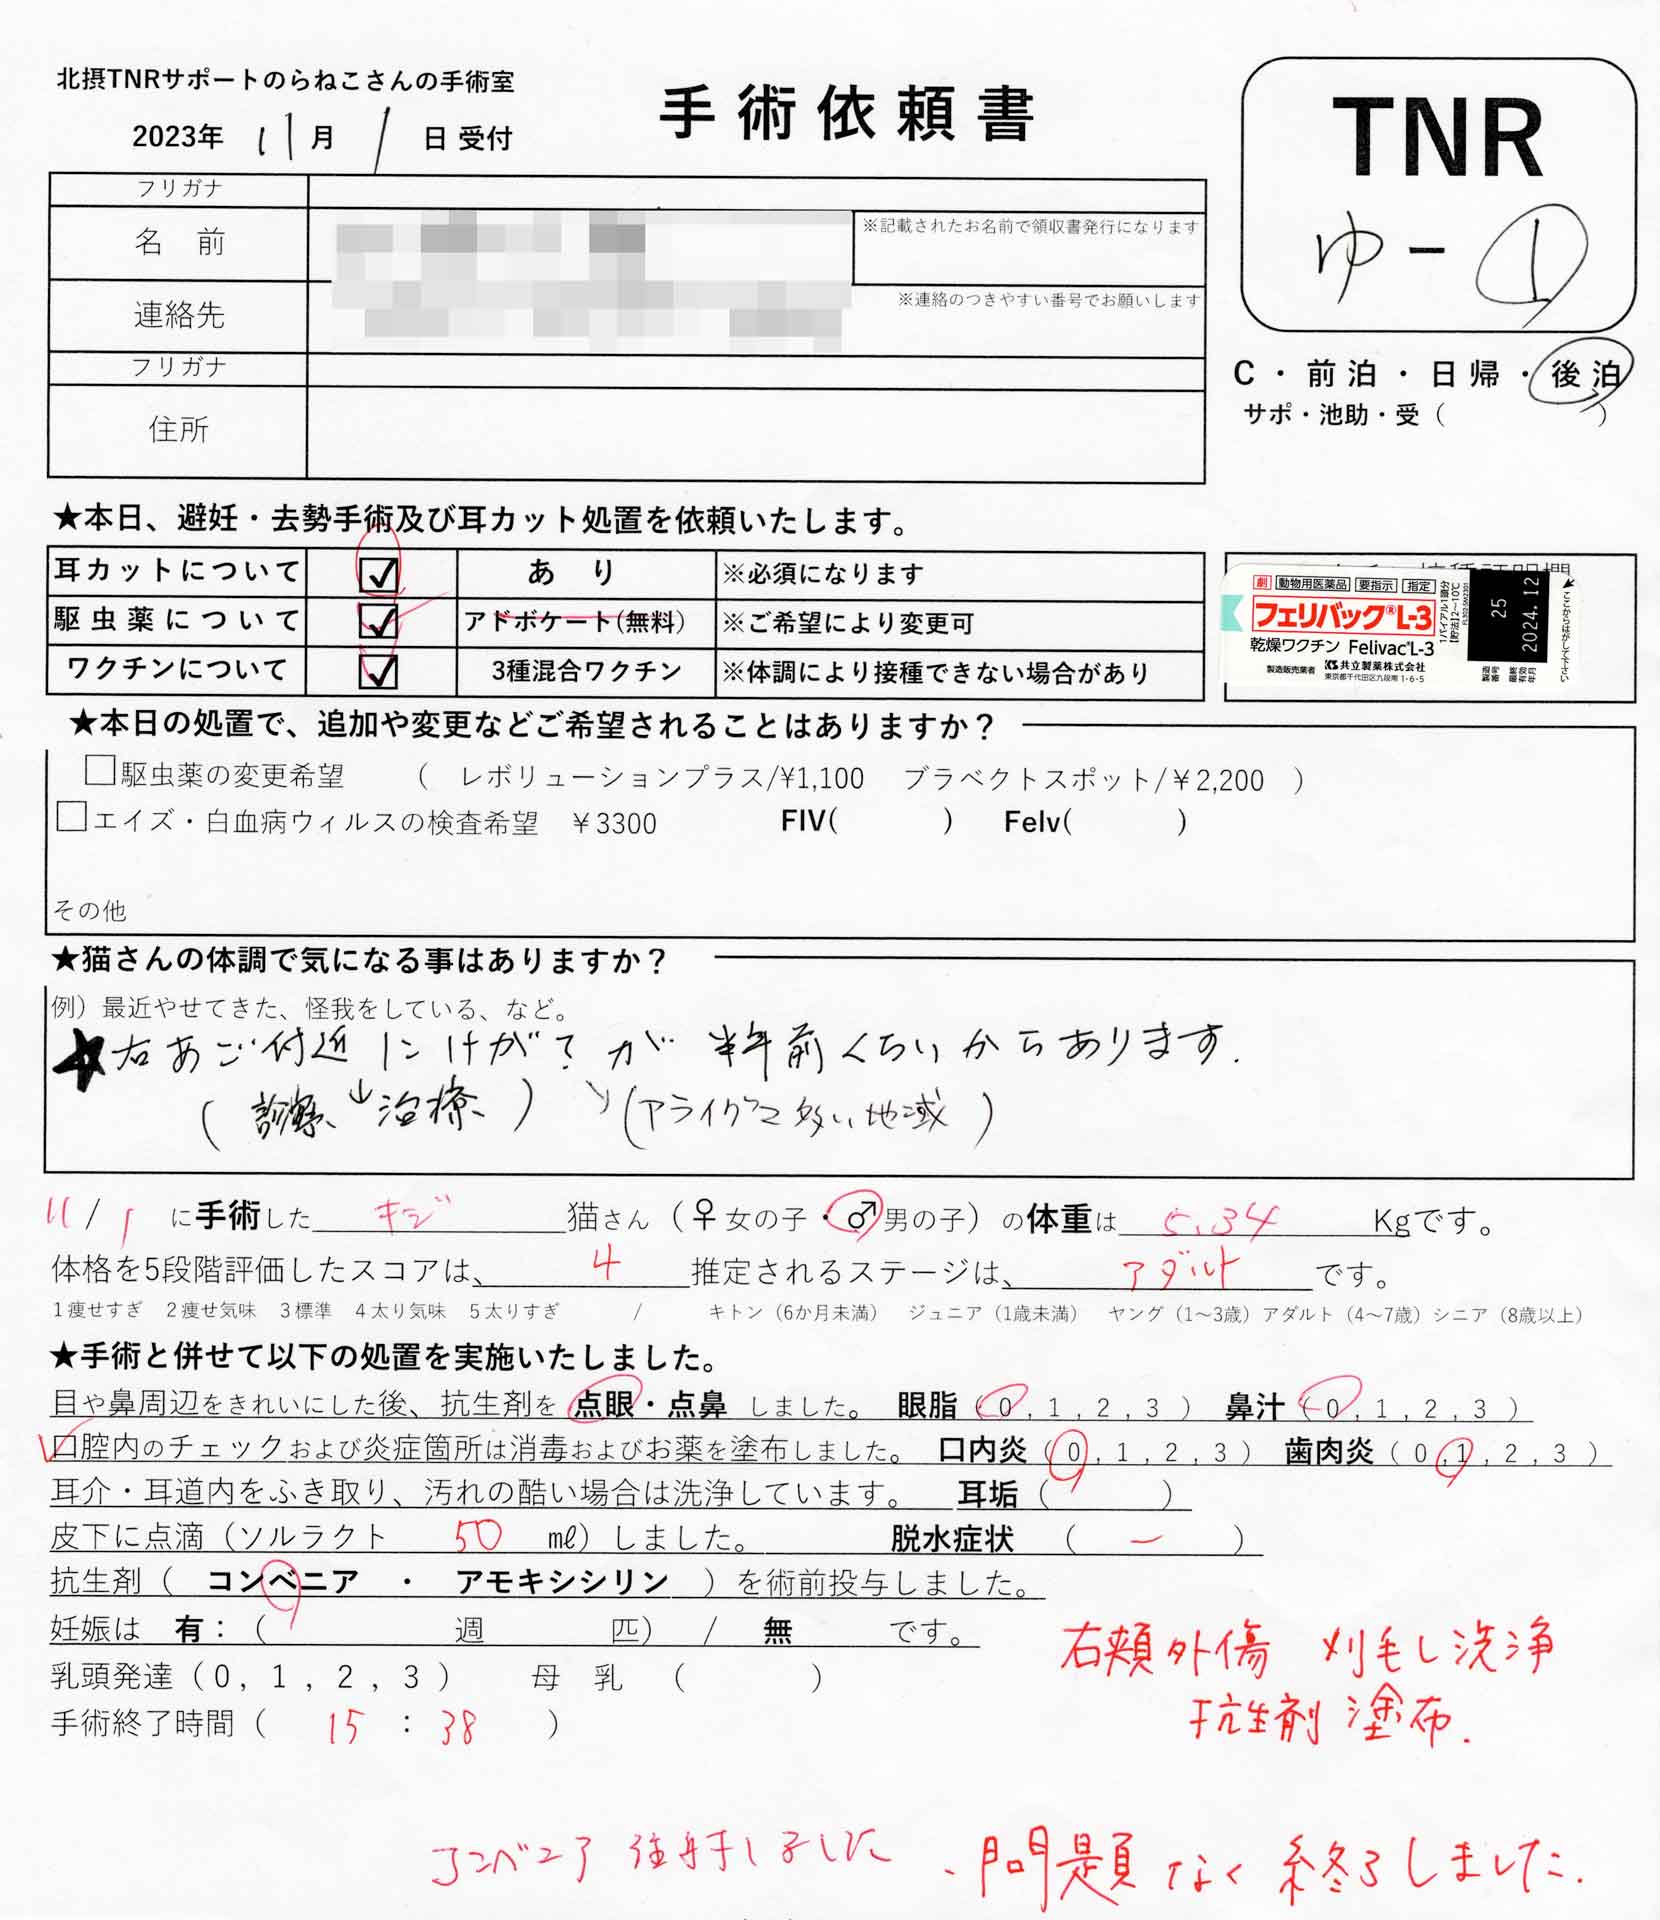 北摂TNRサポートのらねこさんの手術室
手術依頼書
2023年 11月 1日 受付
TNR
ゆ-①
フリガナ
名 前
※記載されたお名前で領収書発行になります
連絡先
※連絡のつきやすい番号でお願いします
フリガナ
住所
C・前泊・日帰・後泊
サポ・池助・受( )
★本日、避妊・去勢手術及び耳カット処置を依頼いたします。
耳カットについて ☑ あ り ※必須になります
駆虫薬について ☑ アドボケート(無料) ※ご希望により変更可
ワクチンについて ☑ 3種混合ワクチン ※体調により接種できない場合があり
劇 動物用医薬品 要指示 指定
フェリバック®L-3
乾燥ワクチン Felivac®L-3
製造販売業者 KS 共立製薬株式会社
東京都千代田区九段南 1-6-5
1バイアル1頭分
【貯法】2~10℃
製造番号 25
最終有効年月 2024.12
ここからはがして下さい
★本日の処置で、追加や変更などご希望されることはありますか?
□駆虫薬の変更希望 ( レボリューションプラス/¥1,100 ブラベクトスポット/¥2,200 )
□エイズ・白血病ウィルスの検査希望 ¥3300 FIV( ) Felv( )
その他
★猫さんの体調で気になる事はありますか?
例)最近やせてきた、怪我をしている、など。
★右あご付近にけが?が 半年前くらいからあります.
(診察、治療) (アライグマ多い地域)
11/1 に手術した キジ 猫さん(♀女の子・♂男の子)の体重は 5.34 Kgです。
体格を5段階評価したスコアは、 4 推定されるステージは、 アダルト です。
1痩せすぎ 2痩せ気味 3標準 4太り気味 5太りすぎ / キトン(6か月未満) ジュニア(1歳未満) ヤング(1~3歳)アダルト(4~7歳)シニア(8歳以上)
★手術と併せて以下の処置を実施いたしました。
目や鼻周辺をきれいにした後、抗生剤を 点眼・点鼻 しました。 眼脂(0,1,2,3) 鼻汁(0,1,2,3)
口腔内のチェックおよび炎症箇所は消毒およびお薬を塗布しました。 口内炎(0,1,2,3) 歯肉炎(0,1,2,3)
耳介・耳道内をふき取り、汚れの酷い場合は洗浄しています。 耳垢( )
皮下に点滴(ソルラクト 50 ㎖)しました。 脱水症状 ( ー )
抗生剤( コンベニア ・ アモキシシリン )を術前投与しました。
妊娠は 有:( 週 匹) / 無 です。
乳頭発達(0,1,2,3) 母 乳 ( )
手術終了時間( 15:38 )
右頬外傷 刈毛し洗浄
抗生剤 塗布.
コンベニア 注射しました
、問題なく終了しました.